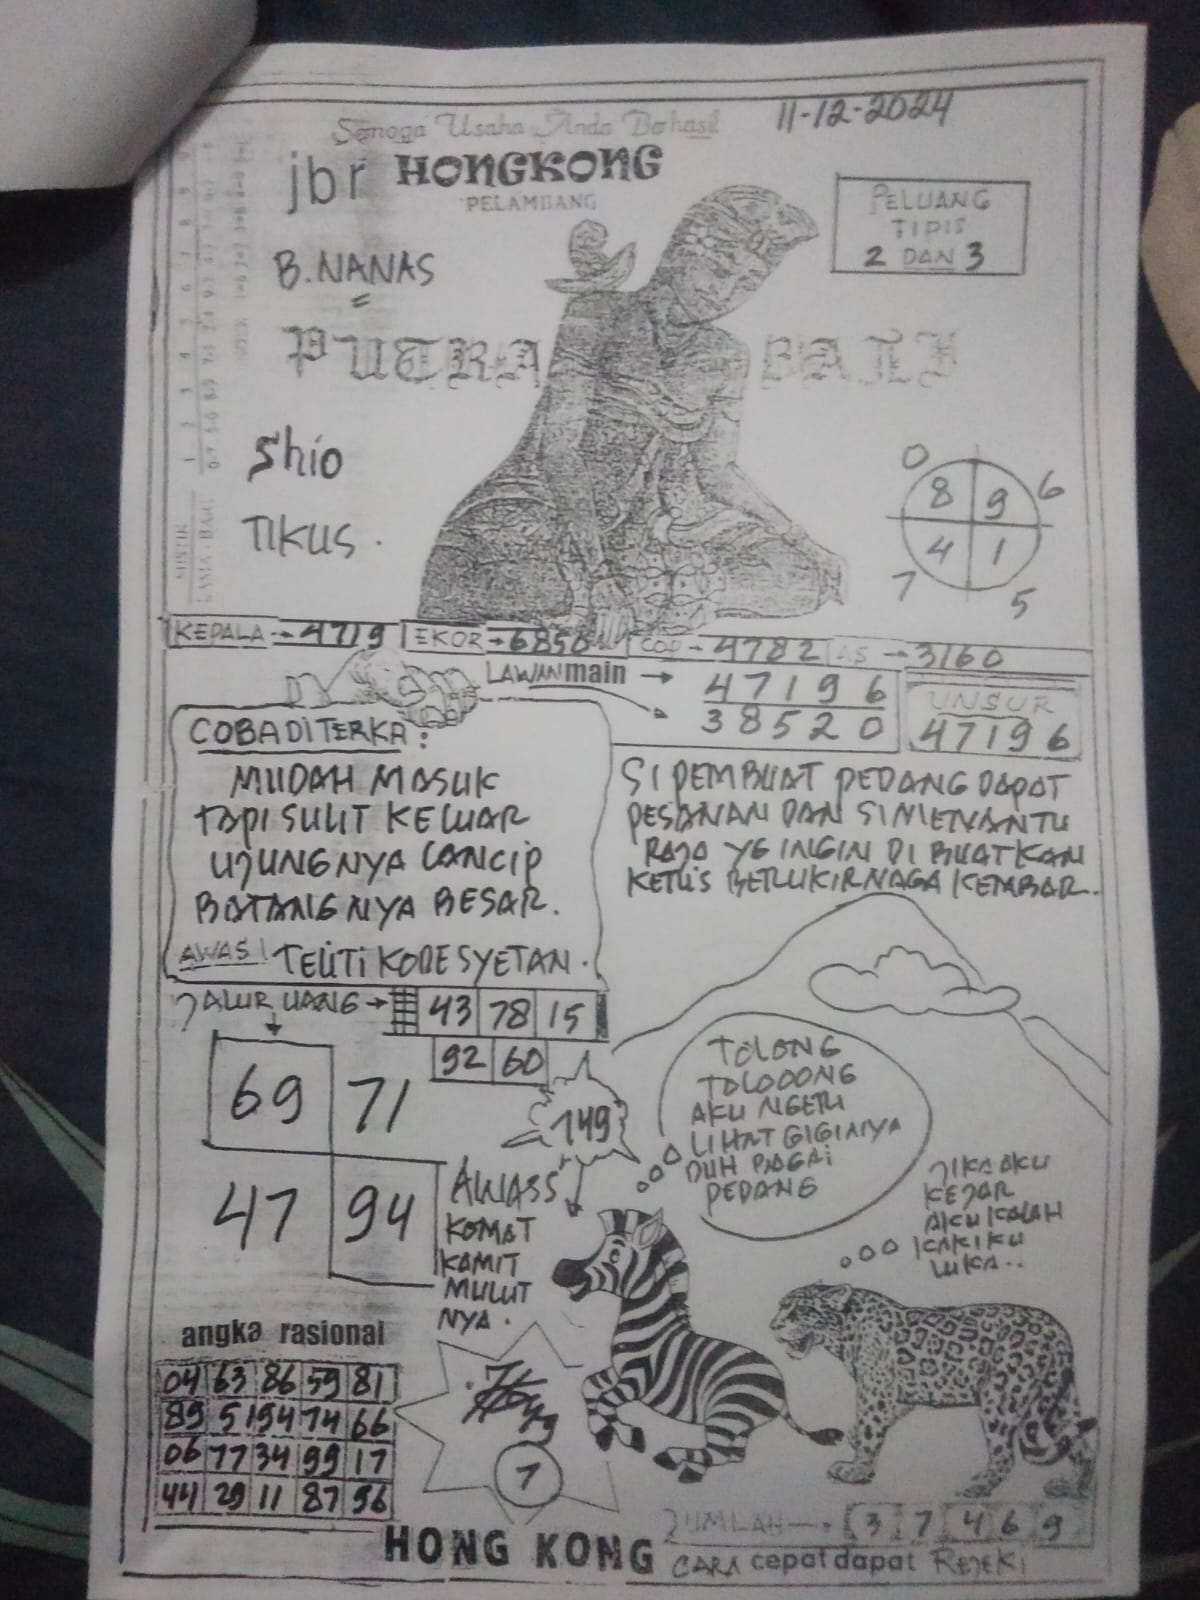 Semoga Usaha Anda Berhasil
11-12-2024
jbr HONGKONG
PELAMBANG
PELUANG
TIPIS
2 DAN 3
B.NANAS
PUTRA BALI
Shio
TIKUS.
0 6
8 9
4 1
7 5
KEPALA → 4719 EKOR → 6850 COP → 4782 AS → 3160
LAWAN main → 47196
38520
UNSUR
47196
COBA DITERKA:
MUDAH MASUK
tapi SULIT KELUAR
UJUNGNYA LANCIP
BATANGNYA BESAR.
AWAS! TELITI KODE SYETAN.
SI PEMBUAT PEDANG DAPAT
PESANAN DAN SI MENANTU
RAJA YG INGIN DI BUATKAN
KERIS BERUKIR NAGA KEMBAR..
JALUR UANG → 43 78 15
92 60
69 71
47 94
149
AWASS
KOMAT
KAMIT
MULUT
NYA.
TOLONG
TOLOOONG
AKU NGERI
LIHAT GIGINYA
DUH BAGAI
PEDANG
JIKA AKU
KEJAR
AKU KALAH
KAKI KU
LUKA..
angka rasional
04 63 86 59 81
89 51 94 74 66
06 77 34 99 17
44 29 11 87 96
7
JUMLAH → 3 7 4 6 9
HONG KONG
CARA cepat dapat REJEKI